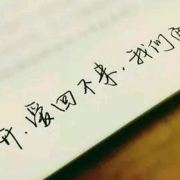 开.爱回不来,我们